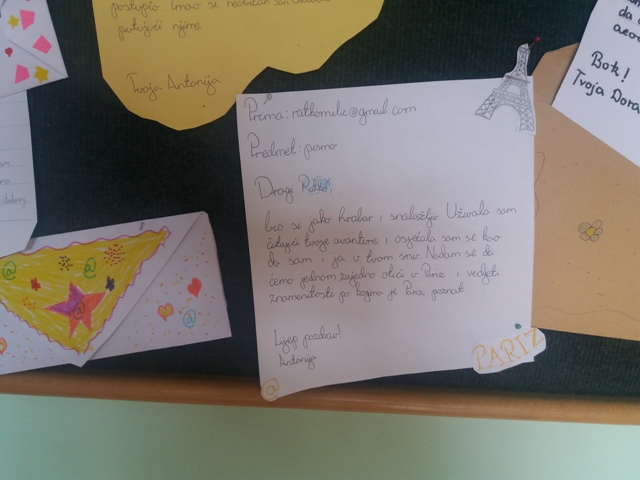 postupio. Imao si neobičan san
putujući njime.
Tvoja Antonija
Prima: ratkomilic@gmail.com
Predmet: pismo
Dragi Ratko,
bio si jako hrabar i snalažljiv. Uživala sam
čitajući tvoje avanture i osjećala sam se kao
da sam i ja u tvom snu. Nadam se da
ćemo jednom zajedno otići u Pariz i vidjeti
znamenitosti po kojima je Pariz poznat.
Lijep pozdrav!
Antonija
PARIZ
@
da
Bok!
Tvoja Dora
@
@
@
@